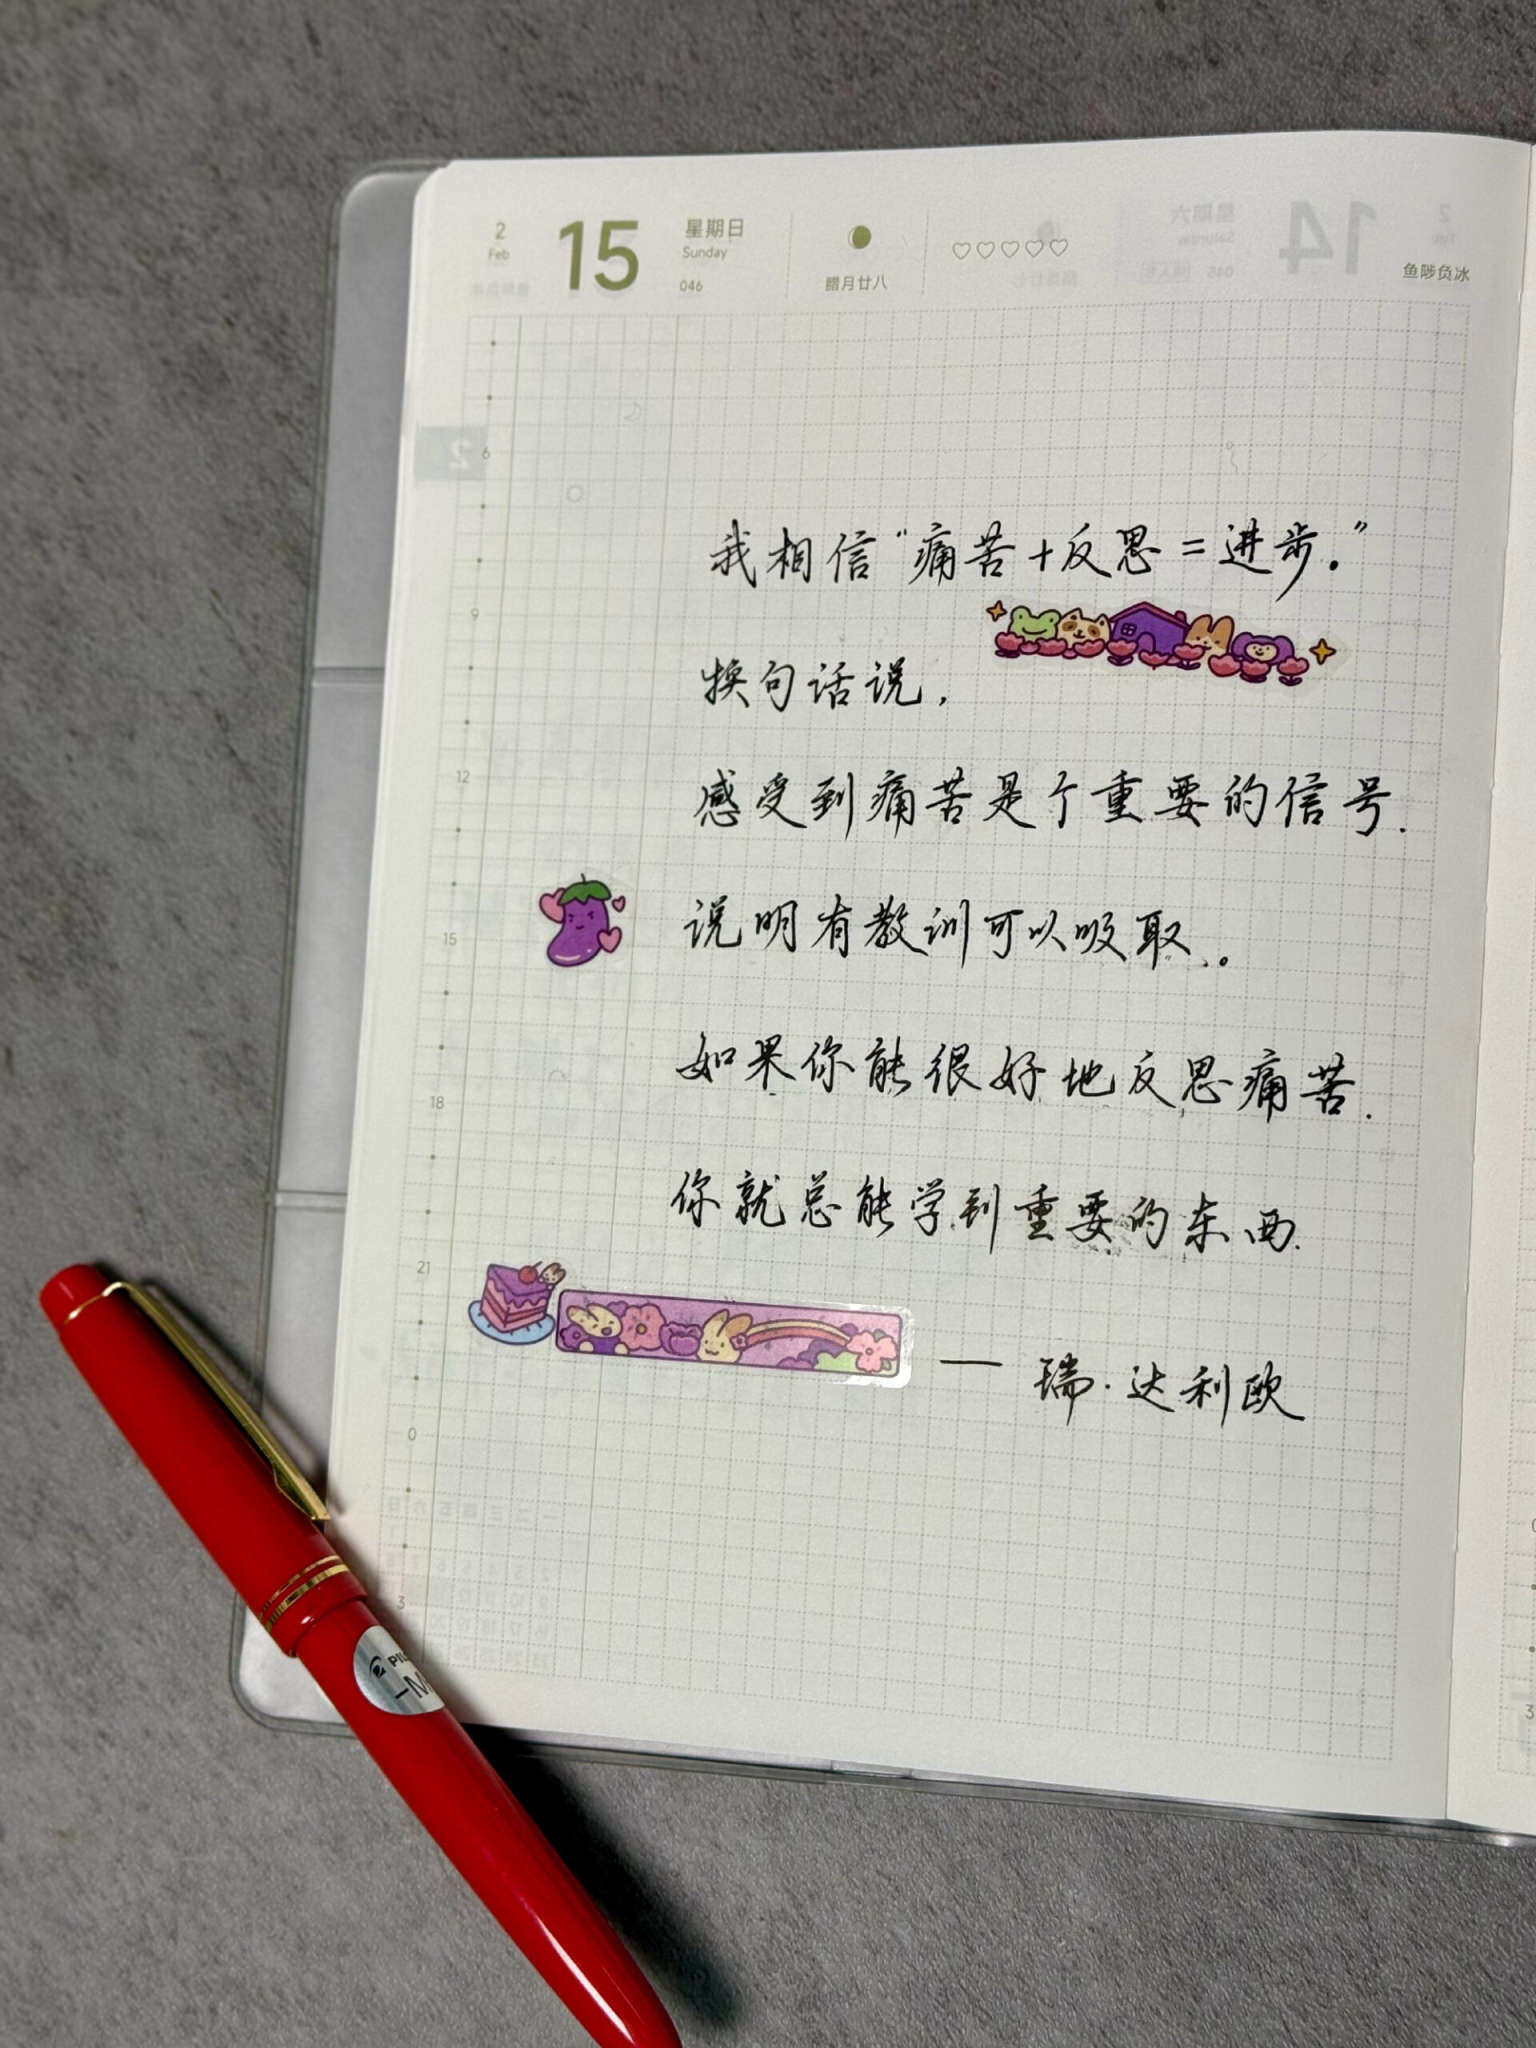 2
Feb
15
星期日
Sunday
046
腊月廿八
鱼陟负冰
6
9
12
15
18
21
0
3
我相信“痛苦+反思=进步.”
换句话说,
感受到痛苦是个重要的信号.
说明有教训可以吸取.
如果你能很好地反思痛苦.
你就总能学到重要的东西.
— 瑞·达利欧
M
3